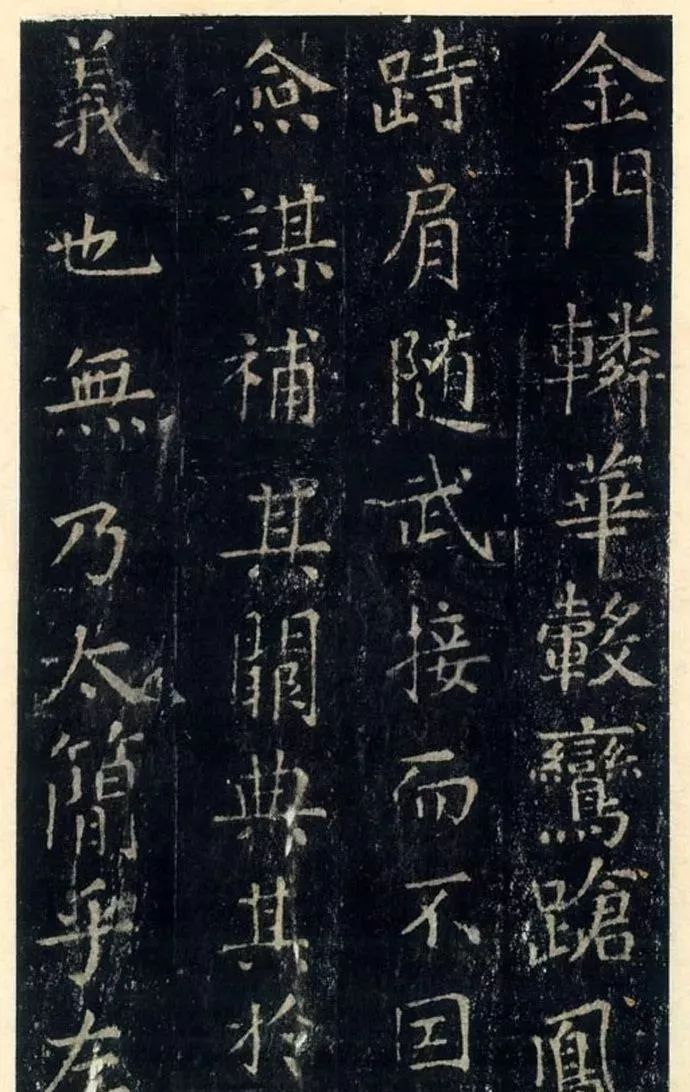 金門轔華轂鸞蹌鳳
跱肩随武接而不囙
僉謀補其闕典其扵
義也無乃太簡乎